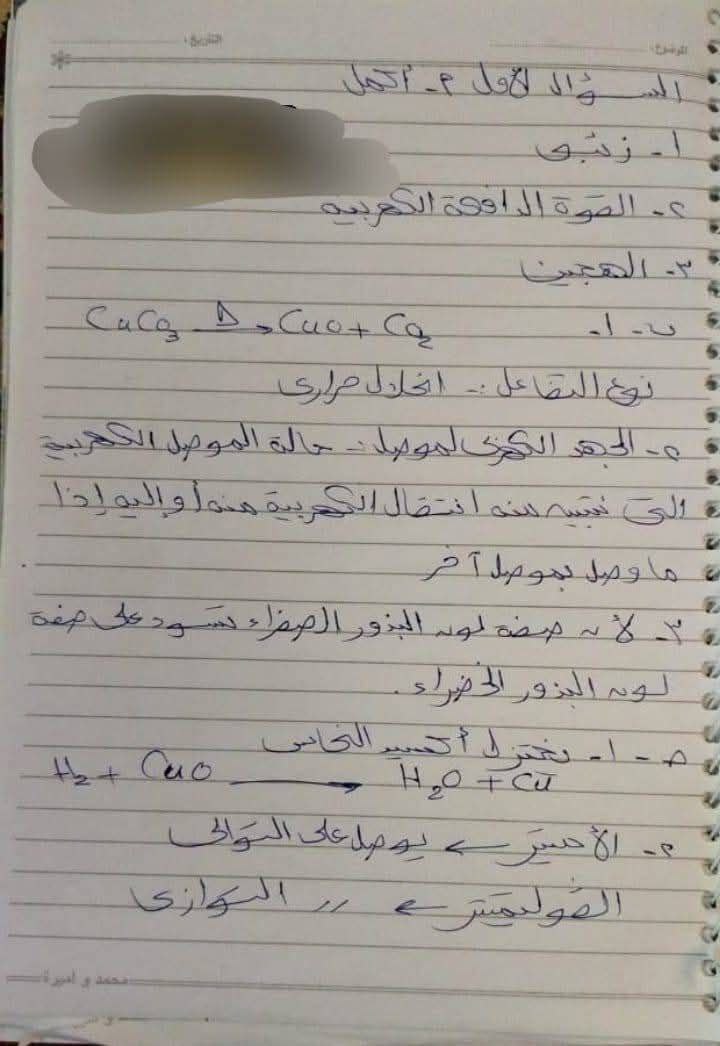 الموضوع: التاريخ:
السؤال الأول م- أكمل
١- زئبق
٢- القوة الدافعة الكهربية
٣- الهجين
ب- ١- CuCO3 Δ→ CuO + CO2
نوع التفاعل :- انحلال حرارى
٢- الجهد الكهربى لموصل :- حالة الموصل الكهربية
التى تبين منه انتقال الكهربية منه أو إليه إذا
ما وصل بموصل آخر
٣- لأن صفة لون البذور الصفراء تسود على صفة
لون البذور الخضراء.
ج- ١- يختزل أكسيد النحاس
H2 + CuO → H2O + Cu
٢- الأميتر ← يوصل على التوالى
الڤولتميتر ← // التوازى
محمد و أميرة